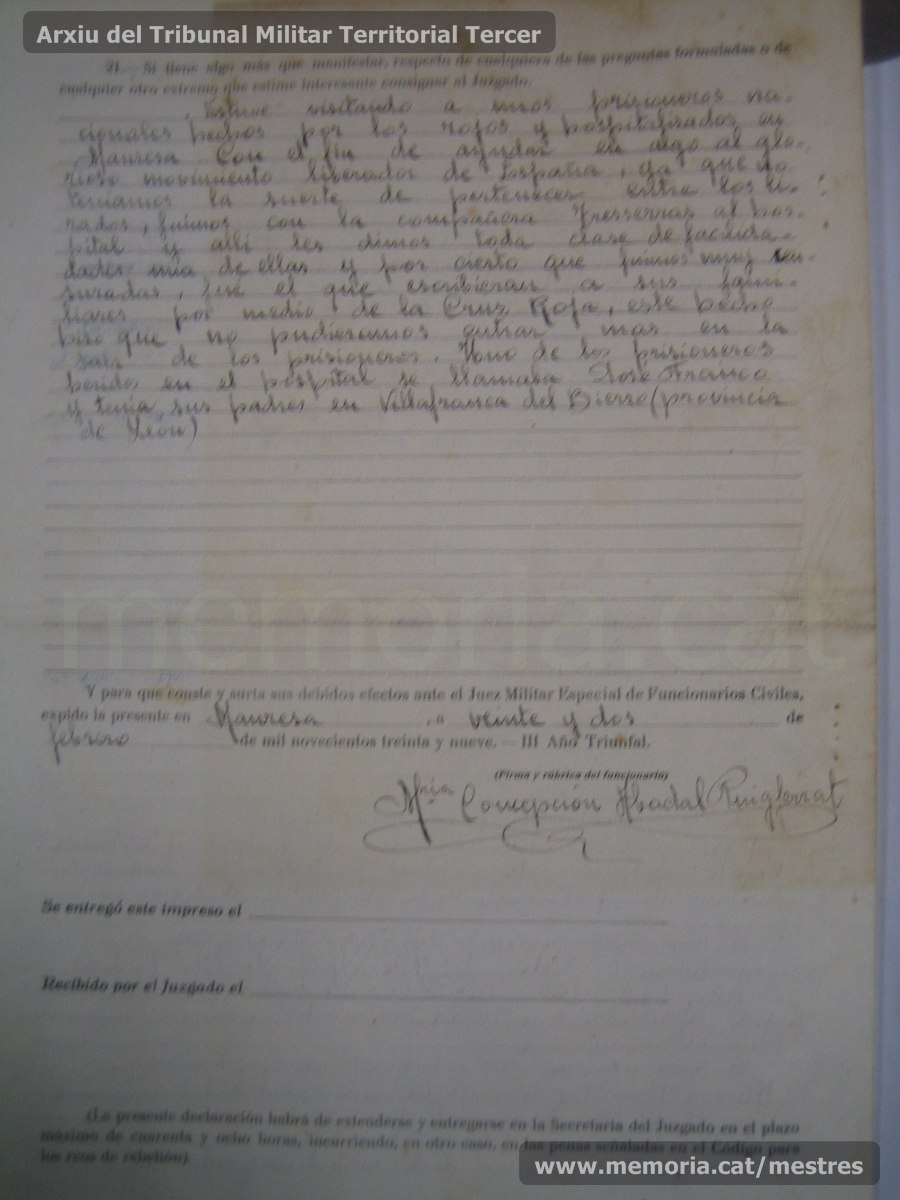 Arxiu del Tribunal Militar Territorial Tercer
21. Si tiene algo más que manifestar, respecto de cualquiera de las preguntas formuladas o de
cualquier otro extremo que estime interesante consignar al Juzgado.
Estuve visitando a unos prisioneros na-
cionales hechos por los rojos y hospitalizados en
Manresa. Con el fin de ayudar en algo al glo-
rioso movimiento liberador de España, ya que no
teniamos la suerte de pertenecer entre los li-
rados, fuimos con la compañera Tresserras al hos-
pital y alli les dimos toda clase de facilida-
des una de ellas y por cierto que fuimos muy cen-
suradas, fue el que escribieran a sus fami-
liares por medio de la Cruz Roja, este hecho
hizo que no pudieramos entrar mas en la
sala de los prisioneros. Uno de los prisioneros
heridos en el hospital se llamaba José Franco
y tenia sus padres en Villafranca del Bierzo (provincia
de León)
memoria.cat
Y para que conste y surta sus debidos efectos ante el Juez Militar Especial de Funcionarios Civiles,
expido la presente en Manresa, a veinte y dos de
febrero de mil novecientos treinta y nueve. — III Año Triunfal.
(Firma y rúbrica del funcionario)
Mª Concepción Abadal Puigferrat
Se entregó este impreso el
Recibido por el Juzgado el
(La presente declaración habrá de extenderse y entregarse en la Secretaría del Juzgado en el plazo
máximo de cuarenta y ocho horas, incurriendo, en otro caso, en las penas señaladas en el Código para
los reos de rebelión).
www.memoria.cat/mestres